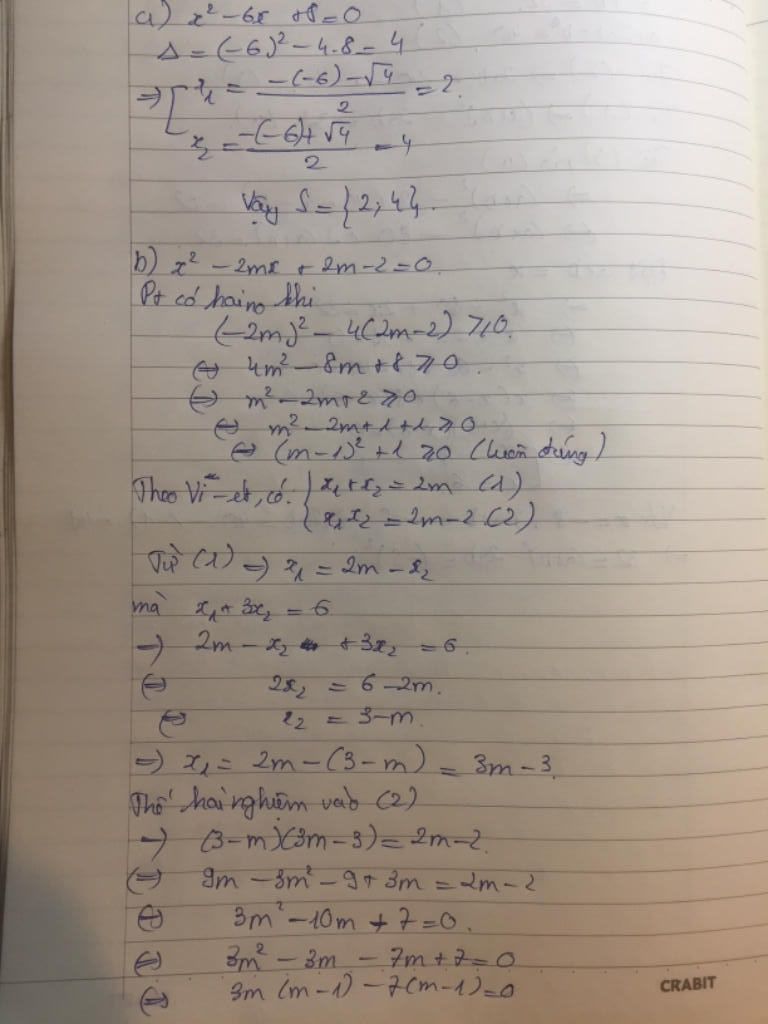 a) x² - 6x + 8 = 0
Δ = (-6)² - 4.8 = 4
⇒ [ x₁ = (-(-6) - √4)/2 = 2.
x₂ = (-(-6) + √4)/2 = 4
Vậy S = {2; 4}.
b) x² - 2mx + 2m - 2 = 0.
Pt có hai no khi
(-2m)² - 4(2m-2) ⩾ 0.
⇔ 4m² - 8m + 8 ⩾ 0.
⇔ m² - 2m + 2 ⩾ 0
⇔ m² - 2m + 1 + 1 ⩾ 0
⇔ (m-1)² + 1 ⩾ 0 (luôn đúng)
Theo Vi-ét, có: { x₁ + x₂ = 2m (1)
x₁x₂ = 2m - 2 (2)
Từ (1) ⇒ x₁ = 2m - x₂
mà x₁ + 3x₂ = 6
⇒ 2m - x₂ + 3x₂ = 6.
⇔ 2x₂ = 6 - 2m.
⇔ x₂ = 3 - m.
⇒ x₁ = 2m - (3 - m) = 3m - 3.
Thế hai nghiệm vào (2)
⇒ (3-m)(3m-3) = 2m - 2.
⇔ 9m - 3m² - 9 + 3m = 2m - 2
⇔ 3m² - 10m + 7 = 0.
⇔ 3m² - 3m - 7m + 7 = 0
⇔ 3m(m-1) - 7(m-1) = 0
CRABIT